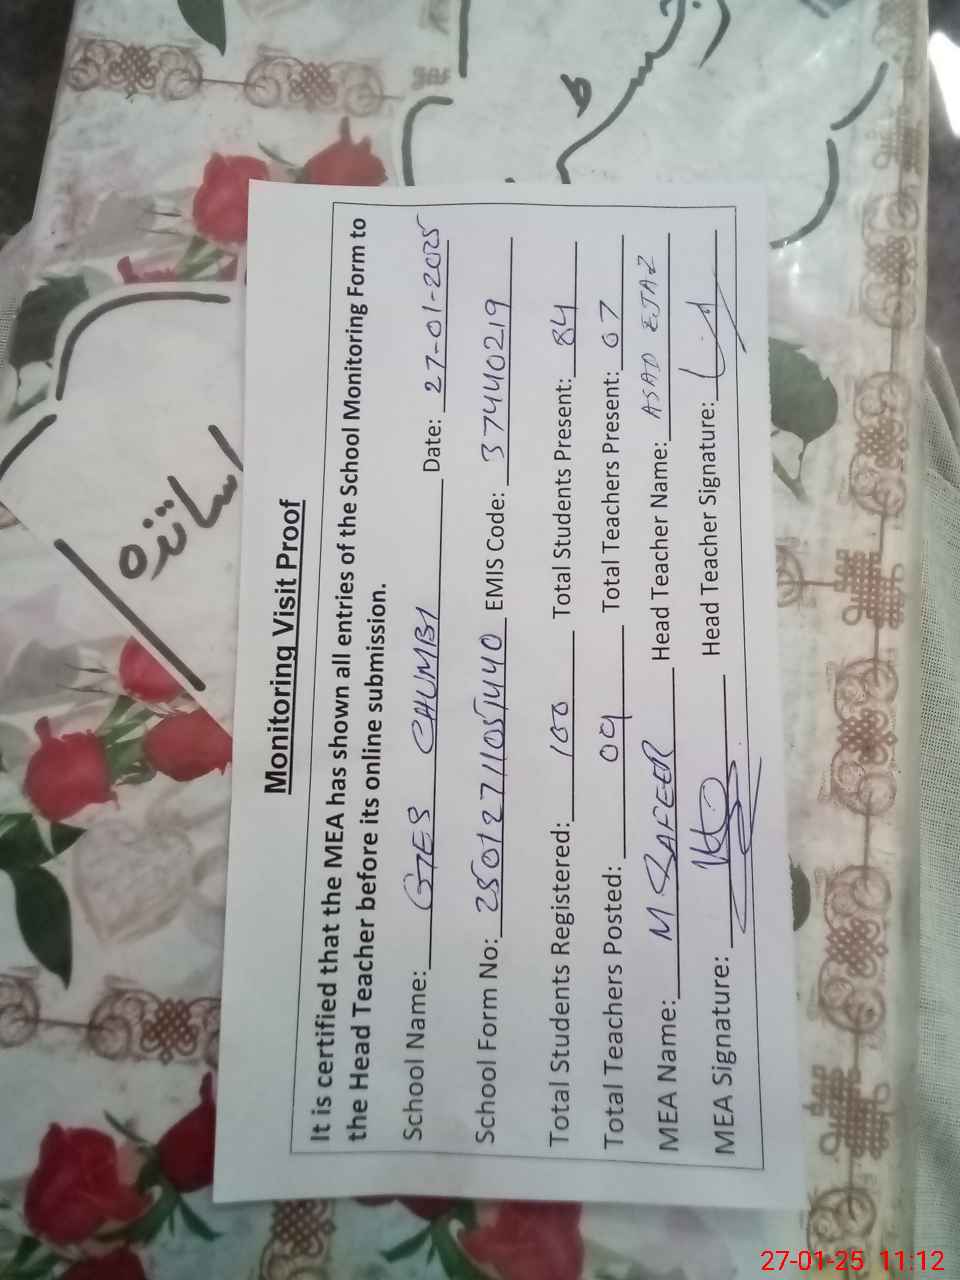 Monitoring Visit Proof
It is certified that the MEA has shown all entries of the School Monitoring Form to
the Head Teacher before its online submission.
School Name: GES CHUMBI Date: 27-01-2025
School Form No: 25012711051440 EMIS Code: 37440219
Total Students Registered: 100 Total Students Present: 84
Total Teachers Posted: 09 Total Teachers Present: 07
MEA Name: M SAFEER Head Teacher Name: ASAD EJAZ
MEA Signature: Head Teacher Signature:
اساتذہ
27-01-25 11:12